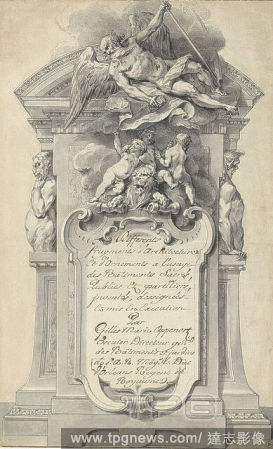 Differents
fragments d'Architecture
& Ornements a l'usage
des Batiments Sacrés,
Publics & particuliers,
inventés, dessignées
& mis en Execution
Par
Gilles Marie Oppenort
Directeur
des Bâtiments et jardins
d'Orleans Regent du
Royaume
www.tpgnews.com / 達志影像